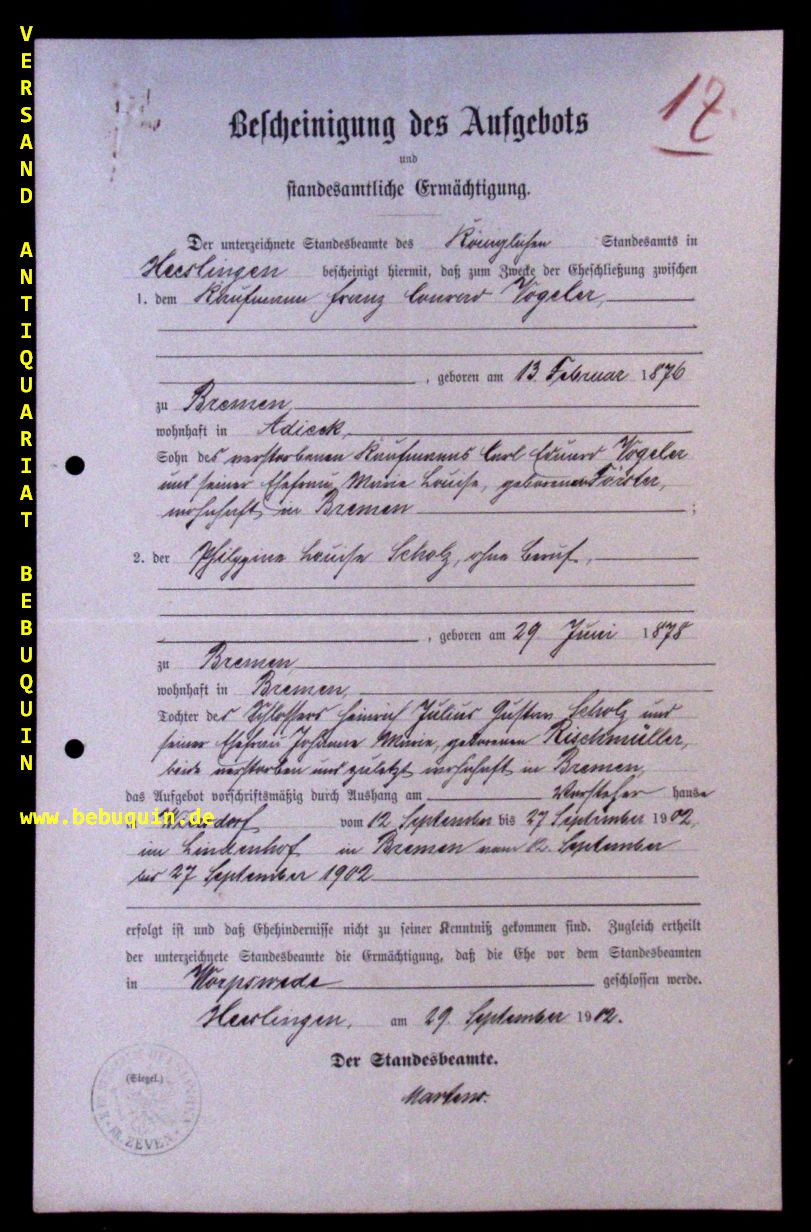 VERSAND ANTIQUARIAT BEBUQUIN
www.bebuquin.de
17.
Bescheinigung des Aufgebots
und
standesamtliche Ermächtigung.
Der unterzeichnete Standesbeamte des Königlichen Standesamts in
Heeslingen bescheinigt hiermit, daß zum Zwecke der Eheschließung zwischen
1. dem Kaufmann Franz Conrad Vogeler,
, geboren am 13. Februar 1876
zu Bremen,
wohnhaft in Adieck,
Sohn des verstorbenen Kaufmanns Carl Eduard Vogeler
und seiner Ehefrau Marie Louise, geborenen Förster,
wohnhaft in Bremen ;
2. der Philippine Louise Scholz, ohne Beruf,
, geboren am 29. Juni 1878
zu Bremen,
wohnhaft in Bremen,
Tochter des Schlossers Heinrich Julius Gustav Scholz und
seiner Ehefrau Johanne Marie, geborenen Rischmüller,
beide verstorben und zuletzt wohnhaft in Bremen,
das Aufgebot vorschriftsmäßig durch Aushang am Vorsteher hause
vom 12. September bis 27. September 1902,
im Lindenhof in Bremen vom 12. September
bis 27 September 1902
erfolgt ist und daß Ehehindernisse nicht zu seiner Kenntniß gekommen sind. Zugleich ertheilt
der unterzeichnete Standesbeamte die Ermächtigung, daß die Ehe vor dem Standesbeamten
in Worpswede geschlossen werde.
Heeslingen, am 29. September 1902.
Der Standesbeamte.
(Siegel.)
Martens.
ZEVEN